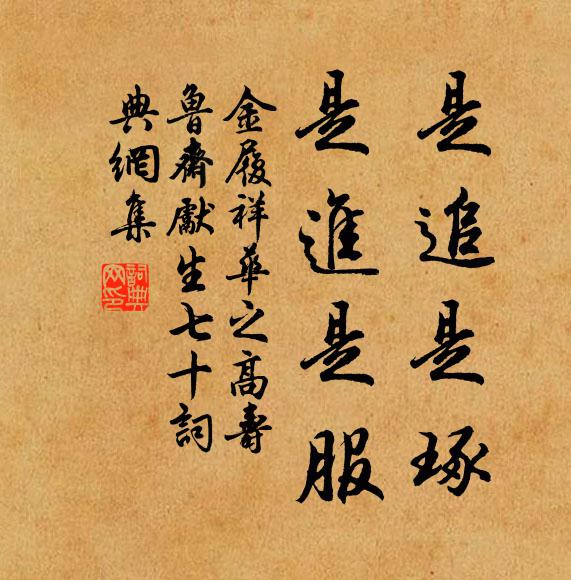 是追是琢
是進是服
金履祥華之高壽
魯齋獻生七十詞
典網集
詞典網印